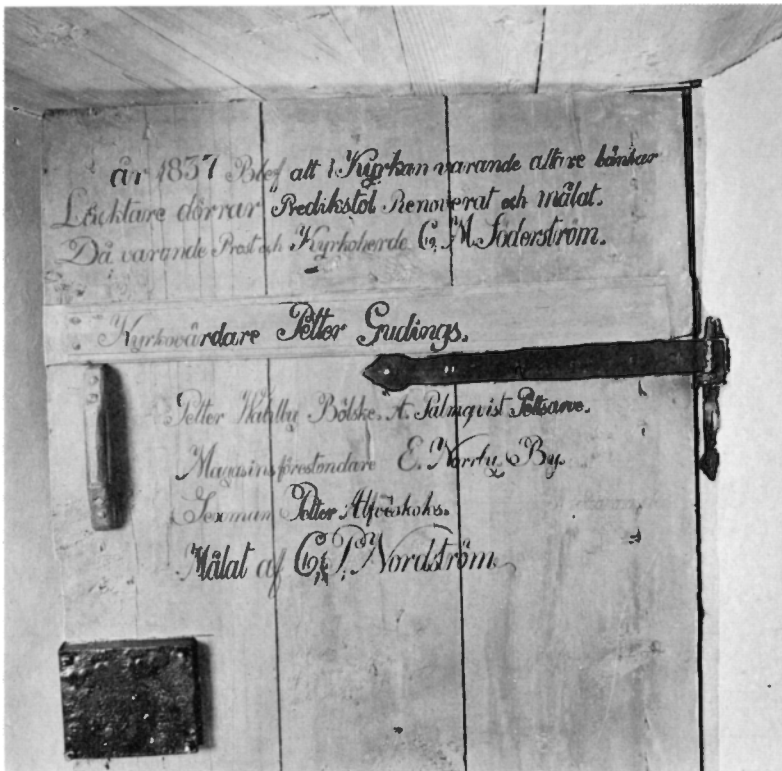 år 1837 Blef alt i Kyrkan varande altare bänkar
Läcktare dörrar Predikstol Renoverat och målat.
Då varande Prost och Kyrkoherde C. M. Söderström.
Kyrkovärdare Petter Gudings.
Petter Bölske. A. Palmqvist Pettsarve.
Magasinsförestondare E. Norrby, By.
Sexman Petter
Målat af C. P. Nordström